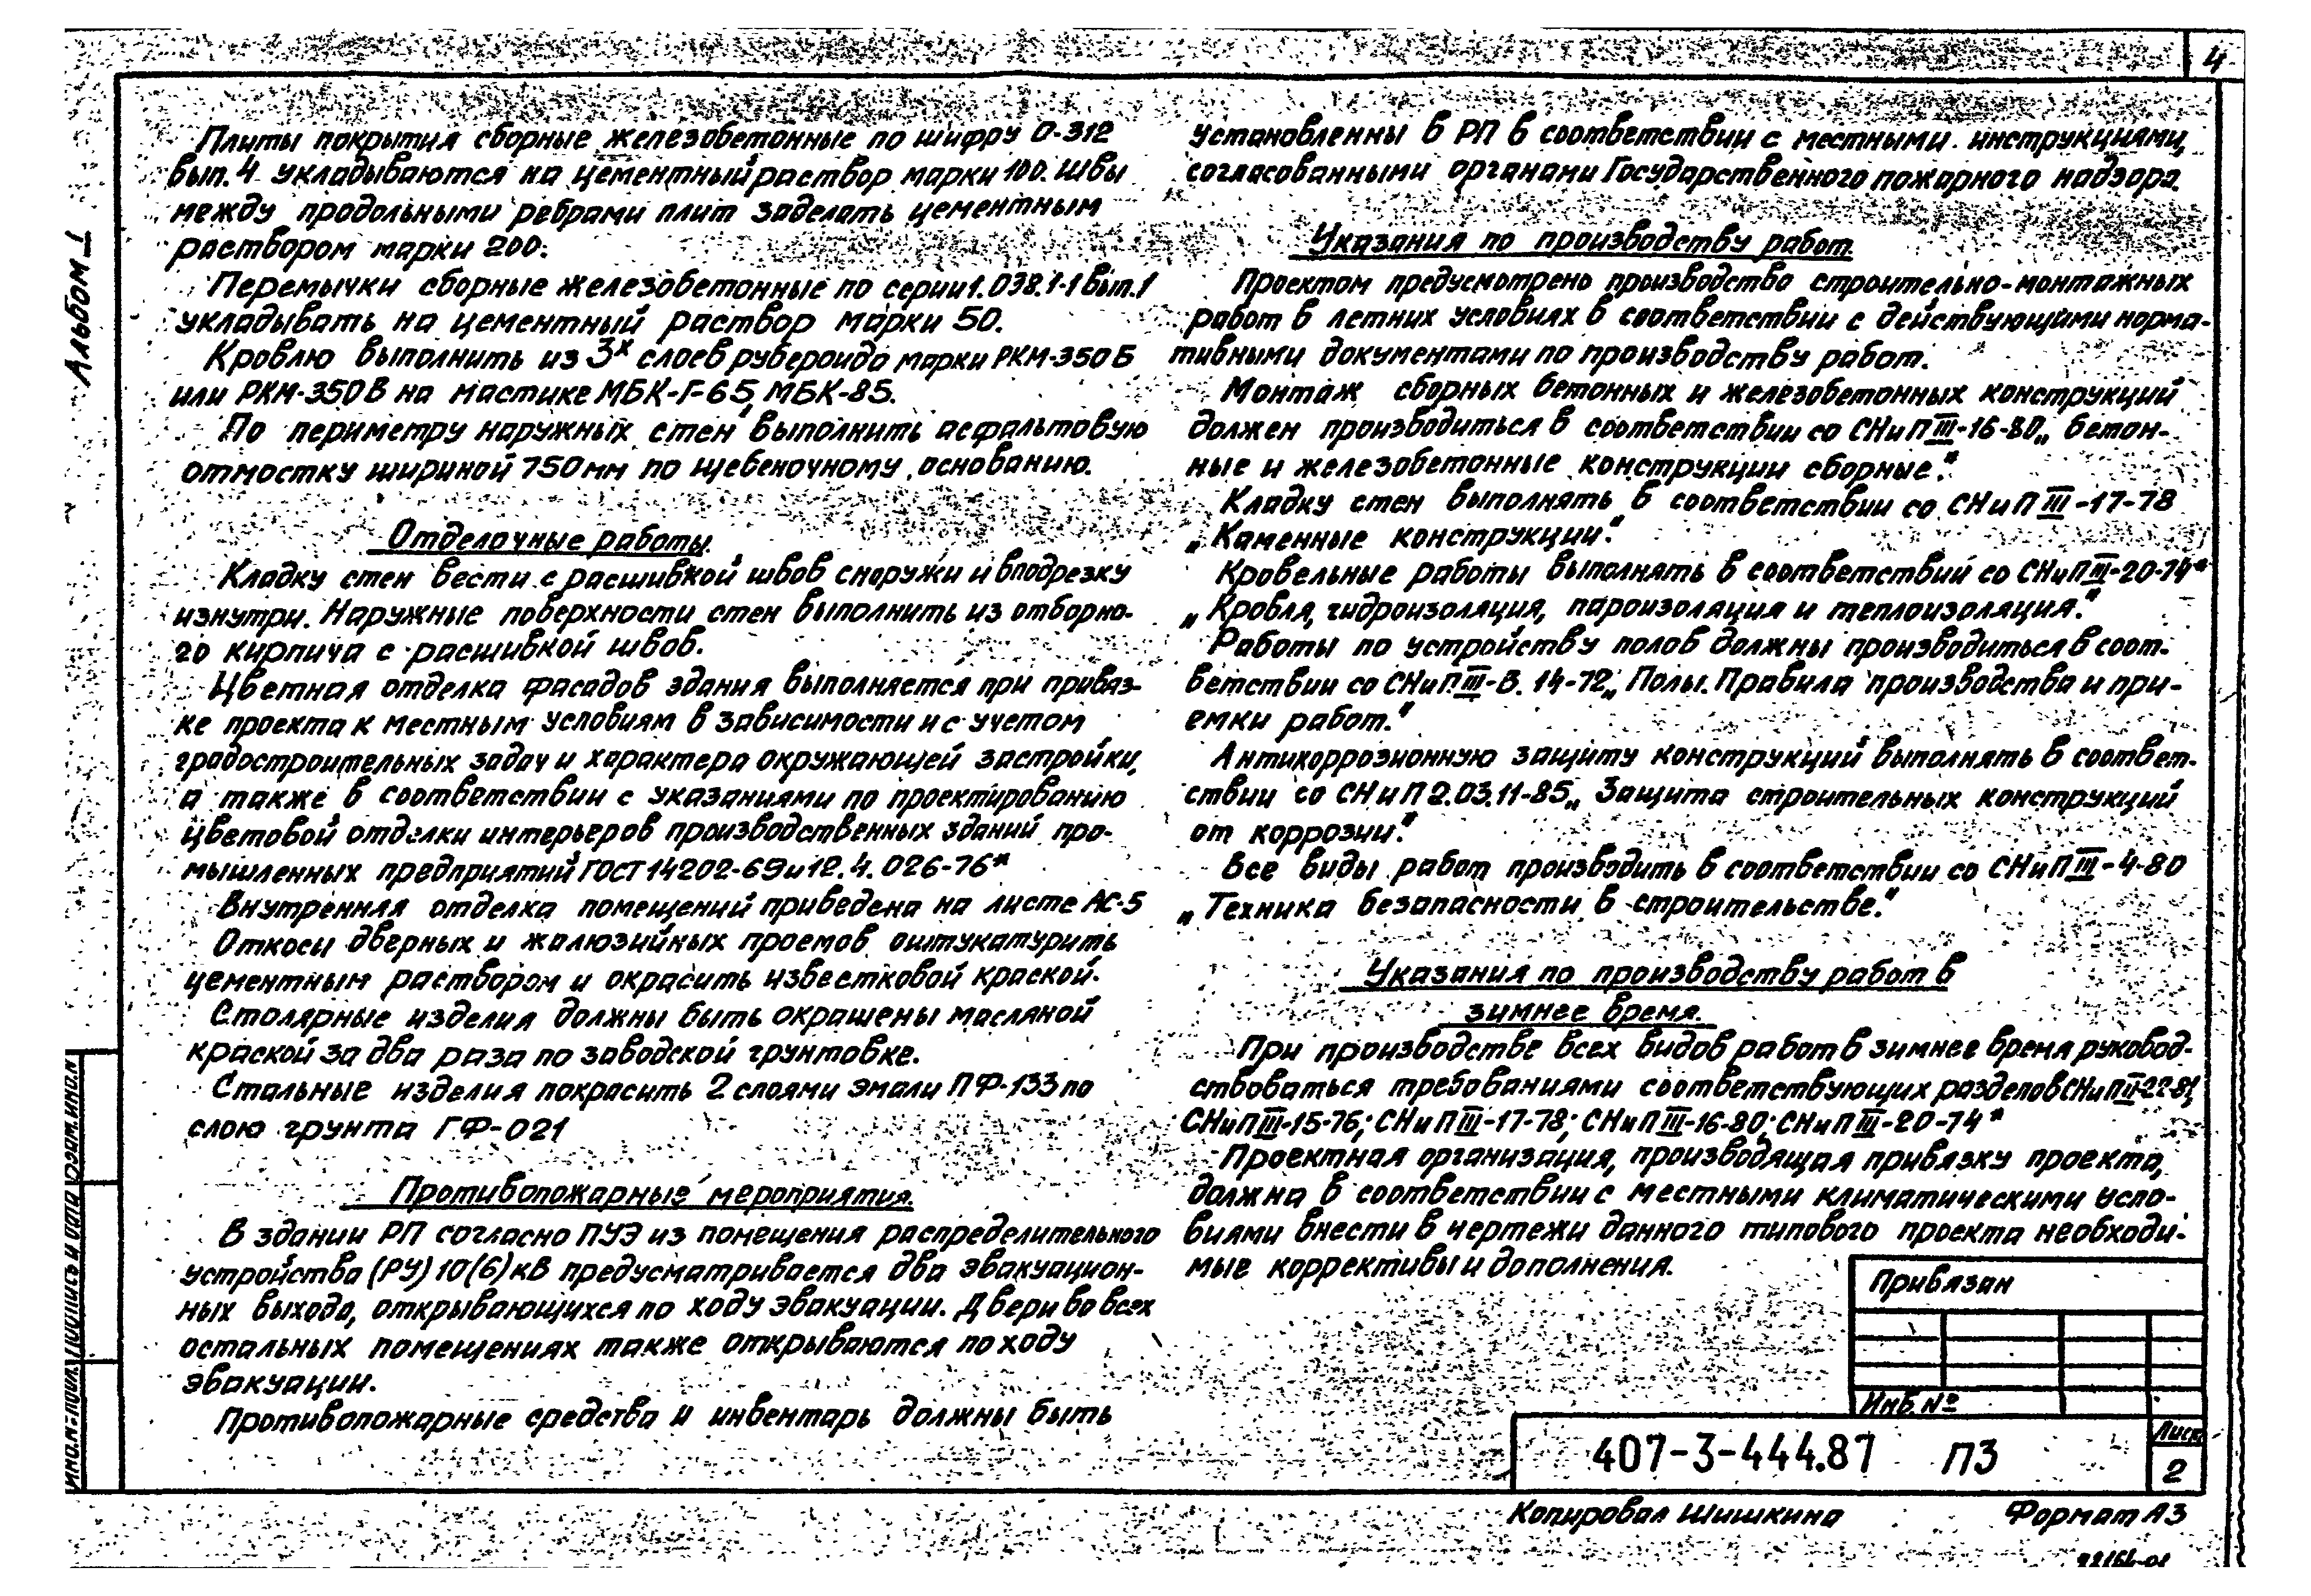 4
Альбом I
Плиты покрытия сборные железобетонные по шифру 0-312
вып. 4 укладываются на цементный раствор марки 100. Швы
между продольными ребрами плит заделать цементным
раствором марки 200.
Перемычки сборные железобетонные по серии 1.038.1-1 вып.1
укладывать на цементный раствор марки 50.
Кровлю выполнить из 3х слоев рубероида марки РКМ-350Б
или РКМ-350В на мастике МБК-Г-65, МБК-85.
По периметру наружных стен выполнить асфальтовую
отмостку шириной 750мм по щебеночному основанию.
Отделочные работы.
Кладку стен вести с расшивкой швов снаружи и вподрезку
изнутри. Наружные поверхности стен выполнить из отборно-
го кирпича с расшивкой швов.
Цветная отделка фасадов здания выполняется при привяз-
ке проекта к местным условиям в зависимости и с учетом
градостроительных задач и характера окружающей застройки,
а также в соответствии с указаниями по проектированию
цветовой отделки интерьеров производственных зданий про-
мышленных предприятий ГОСТ 14202-69 и 12.4.026-76*
Внутренняя отделка помещений приведена на листе АС-5
Откосы дверных и жалюзийных проемов оштукатурить
цементным раствором и окрасить известковой краской.
Столярные изделия должны быть окрашены масляной
краской за два раза по заводской грунтовке.
Стальные изделия покрасить 2 слоями эмали ПФ-133 по
слою грунта ГФ-021
Противопожарные мероприятия.
В здании РП согласно ПУЭ из помещения распределительного
устройства (РУ) 10(6) кВ предусматривается два эвакуацион-
ных выхода, открывающихся по ходу эвакуации. Двери во всех
остальных помещениях также открываются по ходу
эвакуации.
Противопожарные средства и инвентарь должны быть
установленны в РП в соответствии с местными инструкциями,
согласованными органами Государственного пожарного надзора.
Указания по производству работ.
Проектом предусмотрено производство строительно-монтажных
работ в летних условиях в соответствии с действующими норма-
тивными документами по производству работ.
Монтаж сборных бетонных и железобетонных конструкций
должен производиться в соответствии со СНиП III-16-80 „Бетон-
ные и железобетонные конструкции сборные".
Кладку стен выполнять в соответствии со СНиП III-17-78
„Каменные конструкции".
Кровельные работы выполнять в соответствии со СНиП III-20-74*
„Кровля, гидроизоляция, пароизоляция и теплоизоляция".
Работы по устройству полов должны производиться в соот-
ветствии со СНиП III-В.14-72 „Полы. Правила производства и при-
емки работ."
Антикоррозионную защиту конструкций выполнять в соответ-
ствии со СНиП 2.03.11-85 „Защита строительных конструкций
от коррозии".
Все виды работ производить в соответствии со СНиП III-4-80
„Техника безопасности в строительстве."
Указания по производству работ в
зимнее время.
При производстве всех видов работ в зимнее время руковод-
ствоваться требованиями соответствующих разделов СНиП II-22-81,
СНиП III-15-76; СНиП III-17-78; СНиП III-16-80; СНиП III-20-74*
Проектная организация, производящая привязку проекта,
должна в соответствии с местными климатическими усло-
виями внести в чертежи данного типового проекта необходи-
мые коррективы и дополнения.
Привязан
Инв.№
407-3-444.87 ПЗ
Лист
2
Копировал Шишкина Формат А3
22164-01
Инв.№ подл. Подпись и дата Взам.инв.№